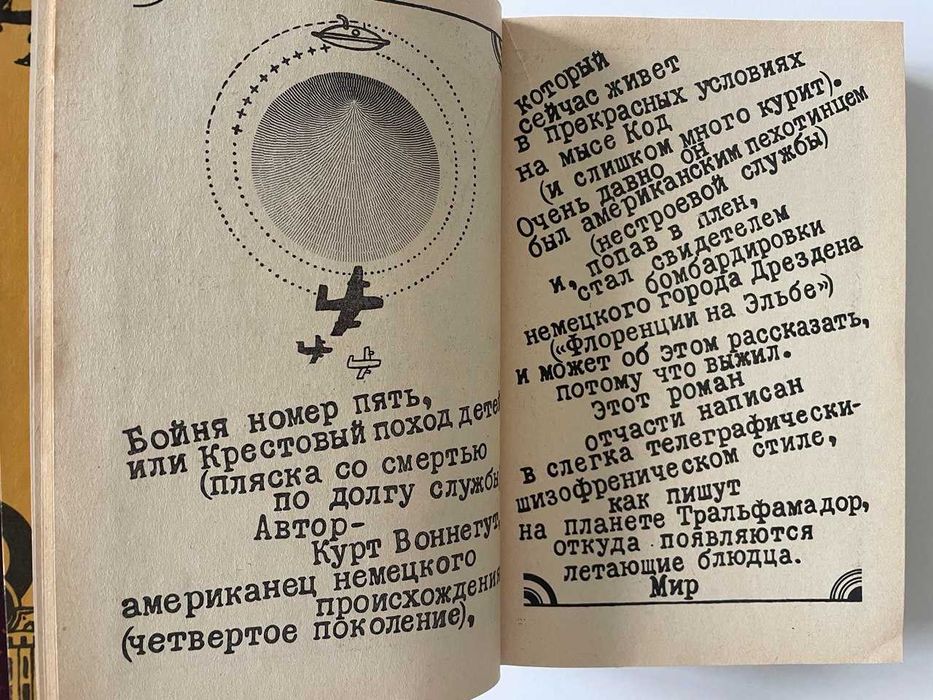 Бойня номер пять,
или Крестовый поход детей
(пляска со смертью
по долгу службы)
Автор-
Курт Воннегут,
американец немецкого
происхождения
(четвертое поколение),
который
сейчас живет
в прекрасных условиях
на мысе Код
(и слишком много курит).
Очень давно он
был американским пехотинцем
(нестроевой службы)
и, попав в плен,
стал свидетелем
бомбардировки
немецкого города Дрездена
(«Флоренции на Эльбе»)
и может об этом рассказать,
потому что выжил.
Этот роман
отчасти написан
в слегка телеграфически-
шизофреническом стиле,
как пишут
на планете Тральфамадор,
откуда появляются
летающие блюдца.
Мир